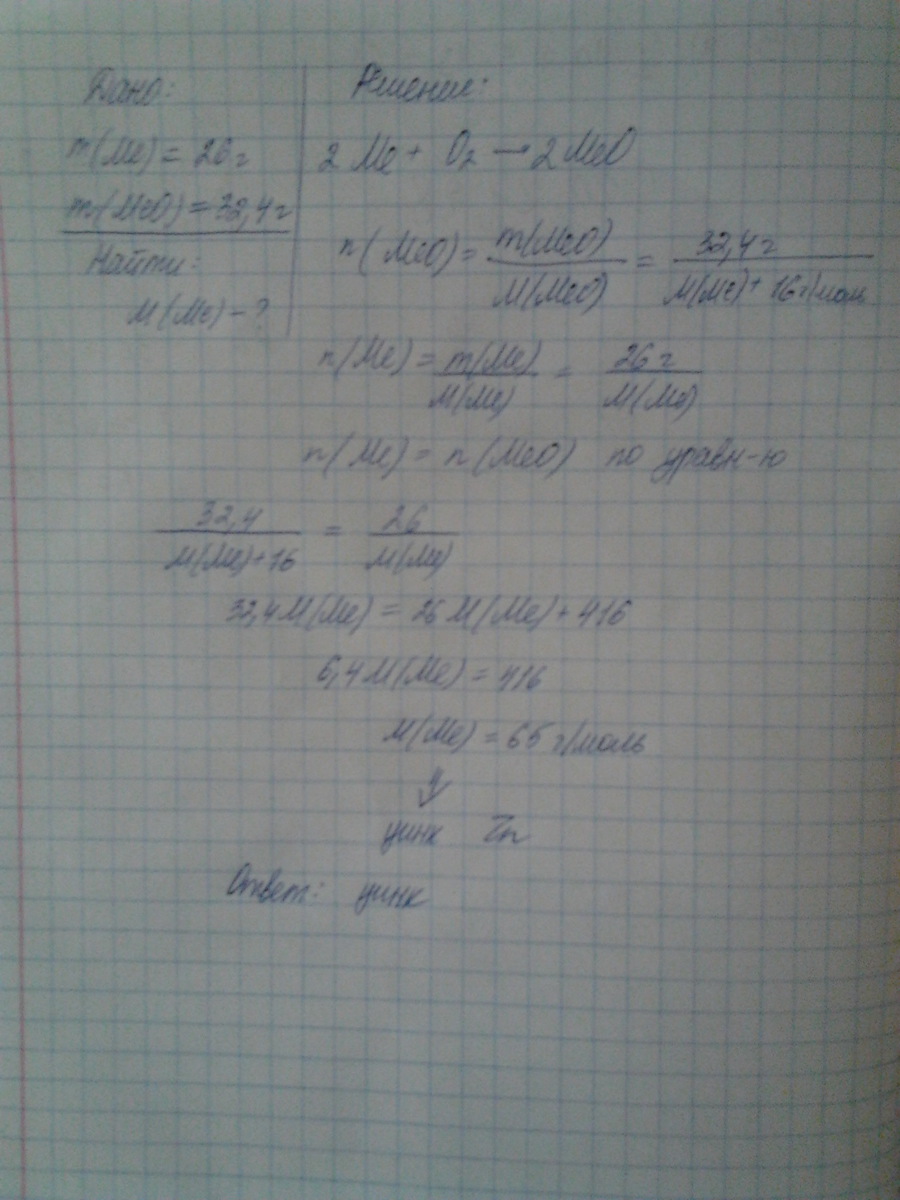 Дано:
m(Me) = 26 г
m(MeO) = 32,4 г
Найти:
M(Me) – ?
Решение:
2 Me + O₂ → 2 MeO
n(MeO) = m(MeO) / M(MeO) = 32,4 г / M(Me) + 16 г/моль
n(Me) = m(Me) / M(Me) = 26 г / M(Me)
n(Me) = n(MeO) по уравн-ю
32,4 / M(Me) + 16 = 26 / M(Me)
32,4 M(Me) = 26 M(Me) + 416
6,4 M(Me) = 416
M(Me) = 65 г/моль
⇓
цинк Zn
Ответ: цинк